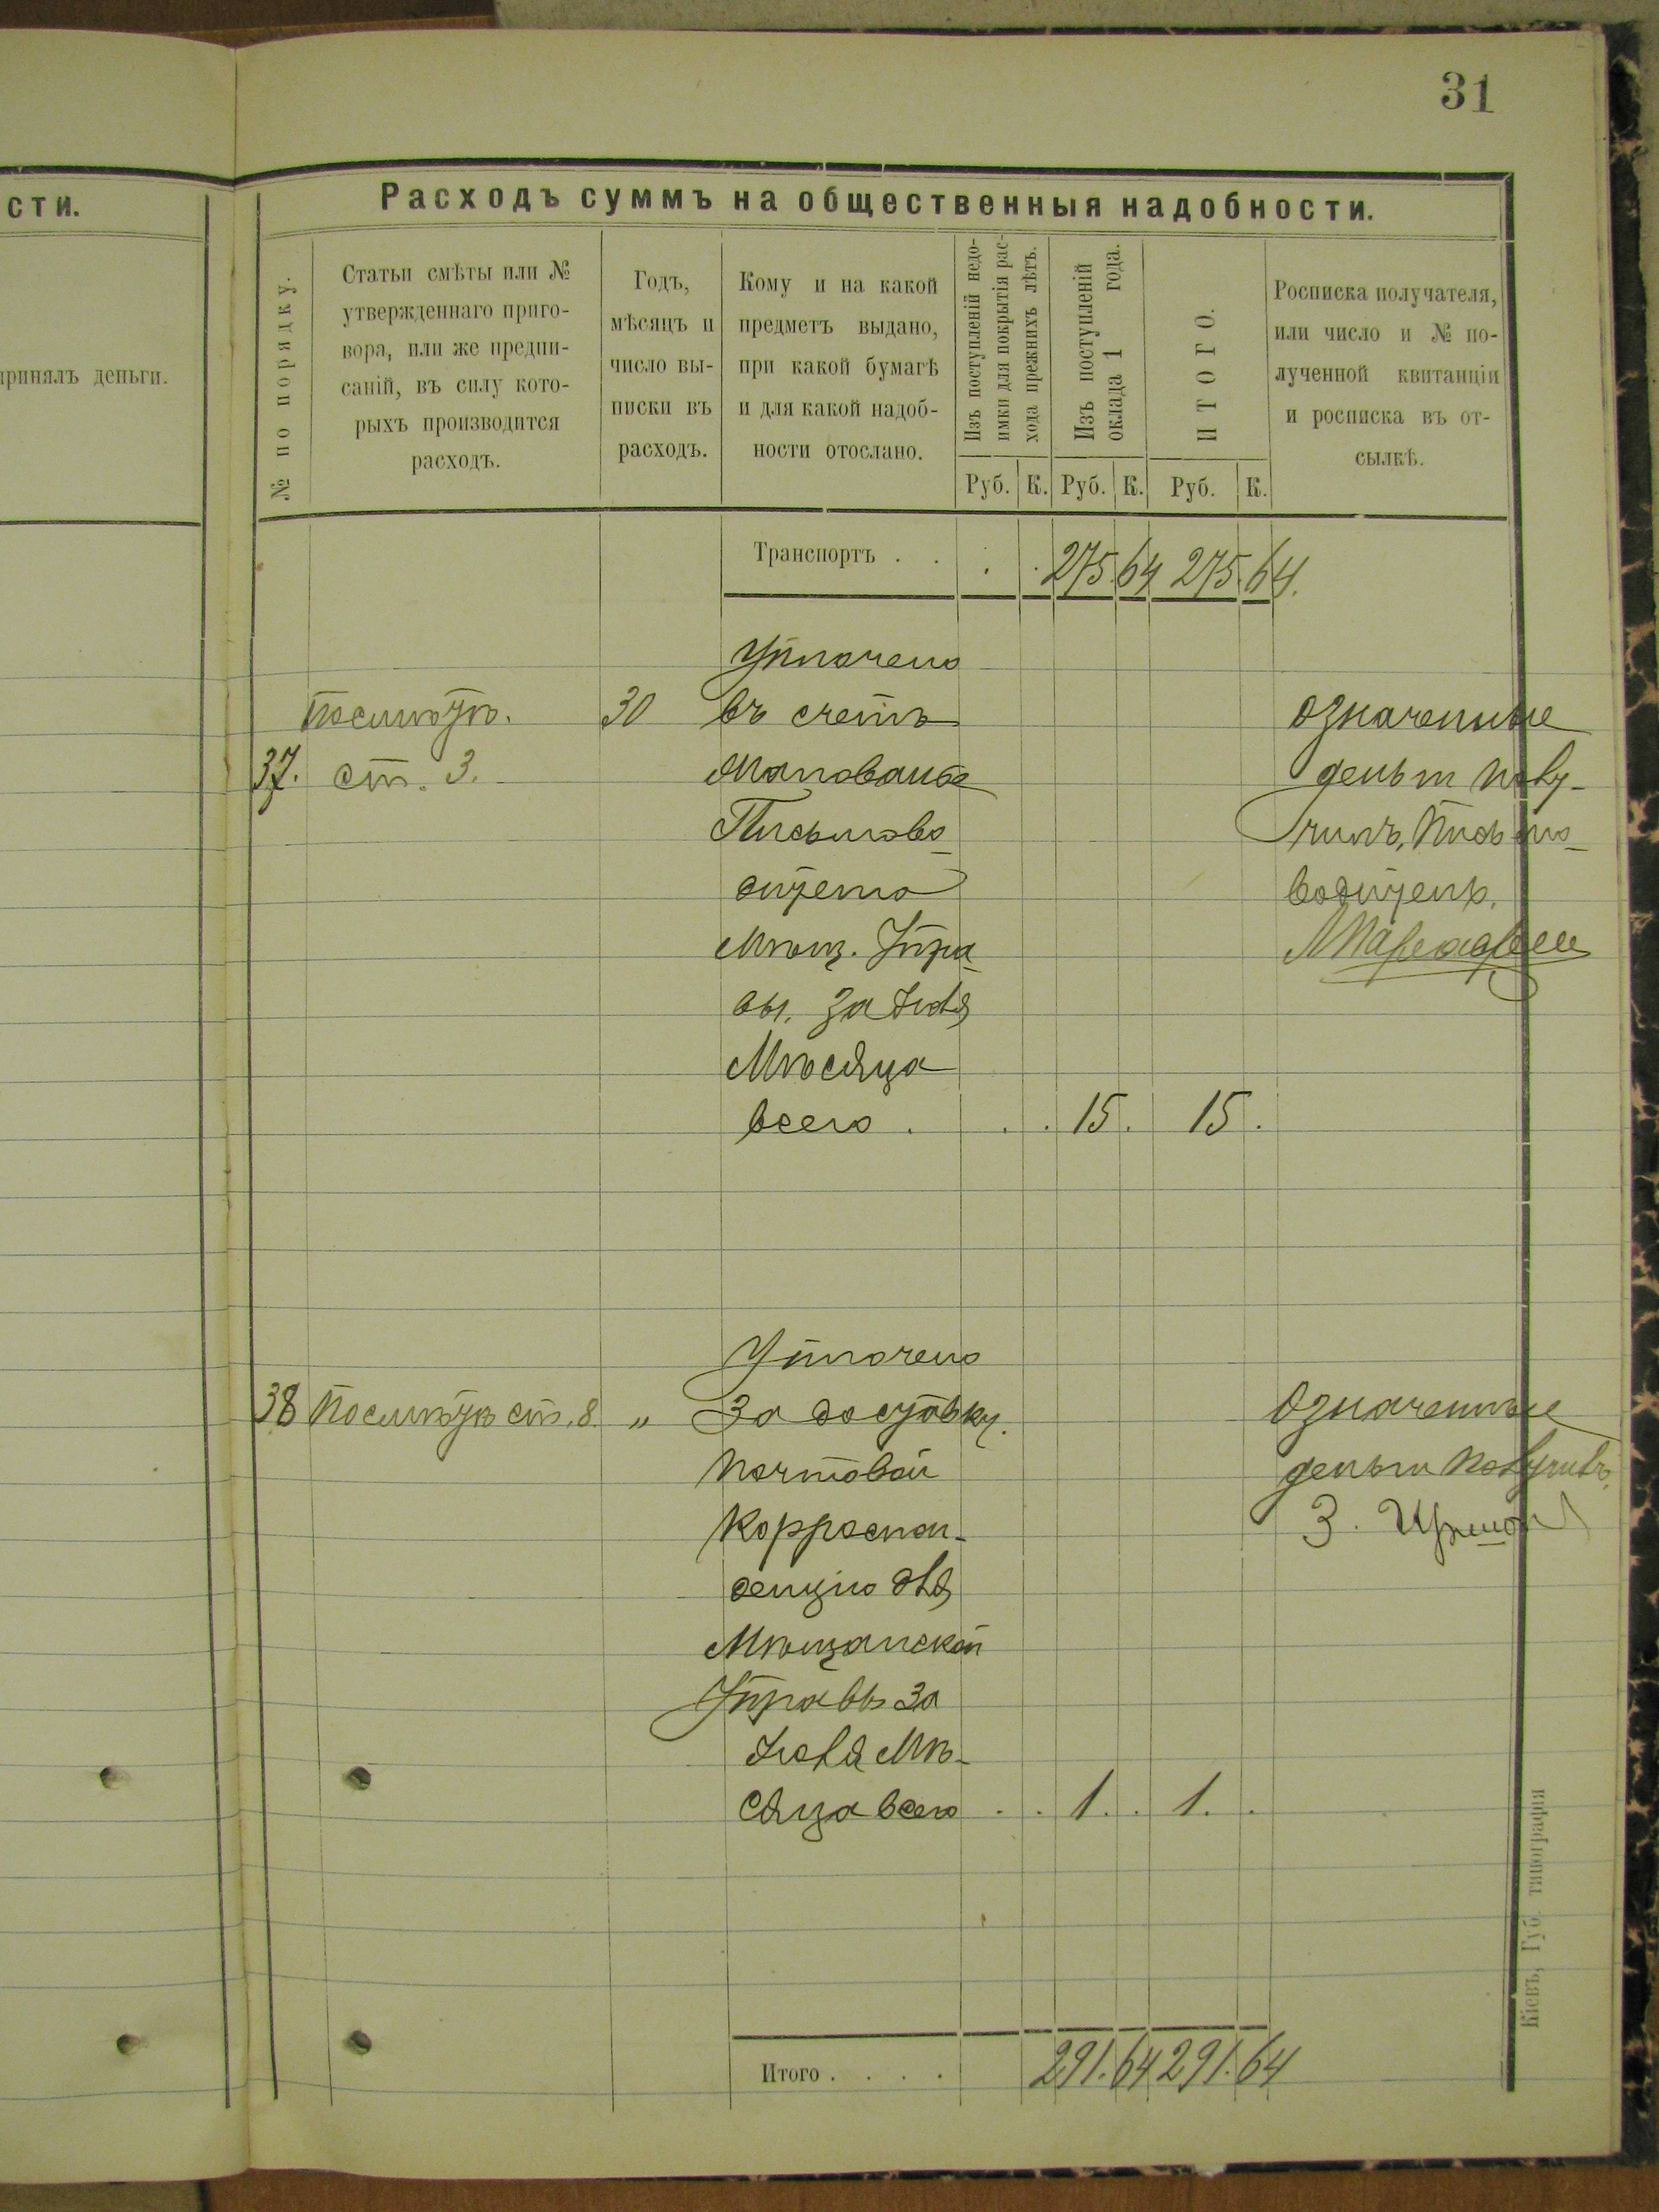 31
сти.
принялъ деньги.
Расходъ суммъ на общественныя надобности.
№ по порядку.
Статьи смѣты или №
утвержденнаго приго-
вора, или же предпи-
саній, въ силу кото-
рыхъ производится
расходъ.
Годъ,
мѣсяцъ и
число вы-
писки въ
расходъ.
Кому и на какой
предметъ выдано,
при какой бумагѣ
и для какой надоб-
ности отослано.
Изъ поступленій недо-
имки для покрытія рас-
хода прежнихъ лѣтъ.
Изъ поступленій
оклада 1 года.
ИТОГО.
Росписка получателя,
или число и № по-
лученной квитанціи
и росписка въ от-
сылкѣ.
Руб. К. Руб. К. Руб. К.
Транспортъ . . . . 275 64 275 64.
Уплачено
по смѣтѣ. 30 въ счетъ
37. ст. 3. жалованье
Письмово-
дителю
Мѣщ. Упра-
вы. за Іюля
Мѣсяца
всего . . . 15. 15.
Означенные
деньги полу-
чилъ, Письмо-
водитель,
Уплачено
38 по смѣтѣ ст. 8. „ За доставку
почтовой
корреспон-
денціи для
Мѣщанской
Управы за
Іюля Мѣ-
сяца всего . . 1. . 1. .
Означенные
деньги получивъ
З.
Итого . . . . 291.64 291.64
Кіевъ, Губ. типографія